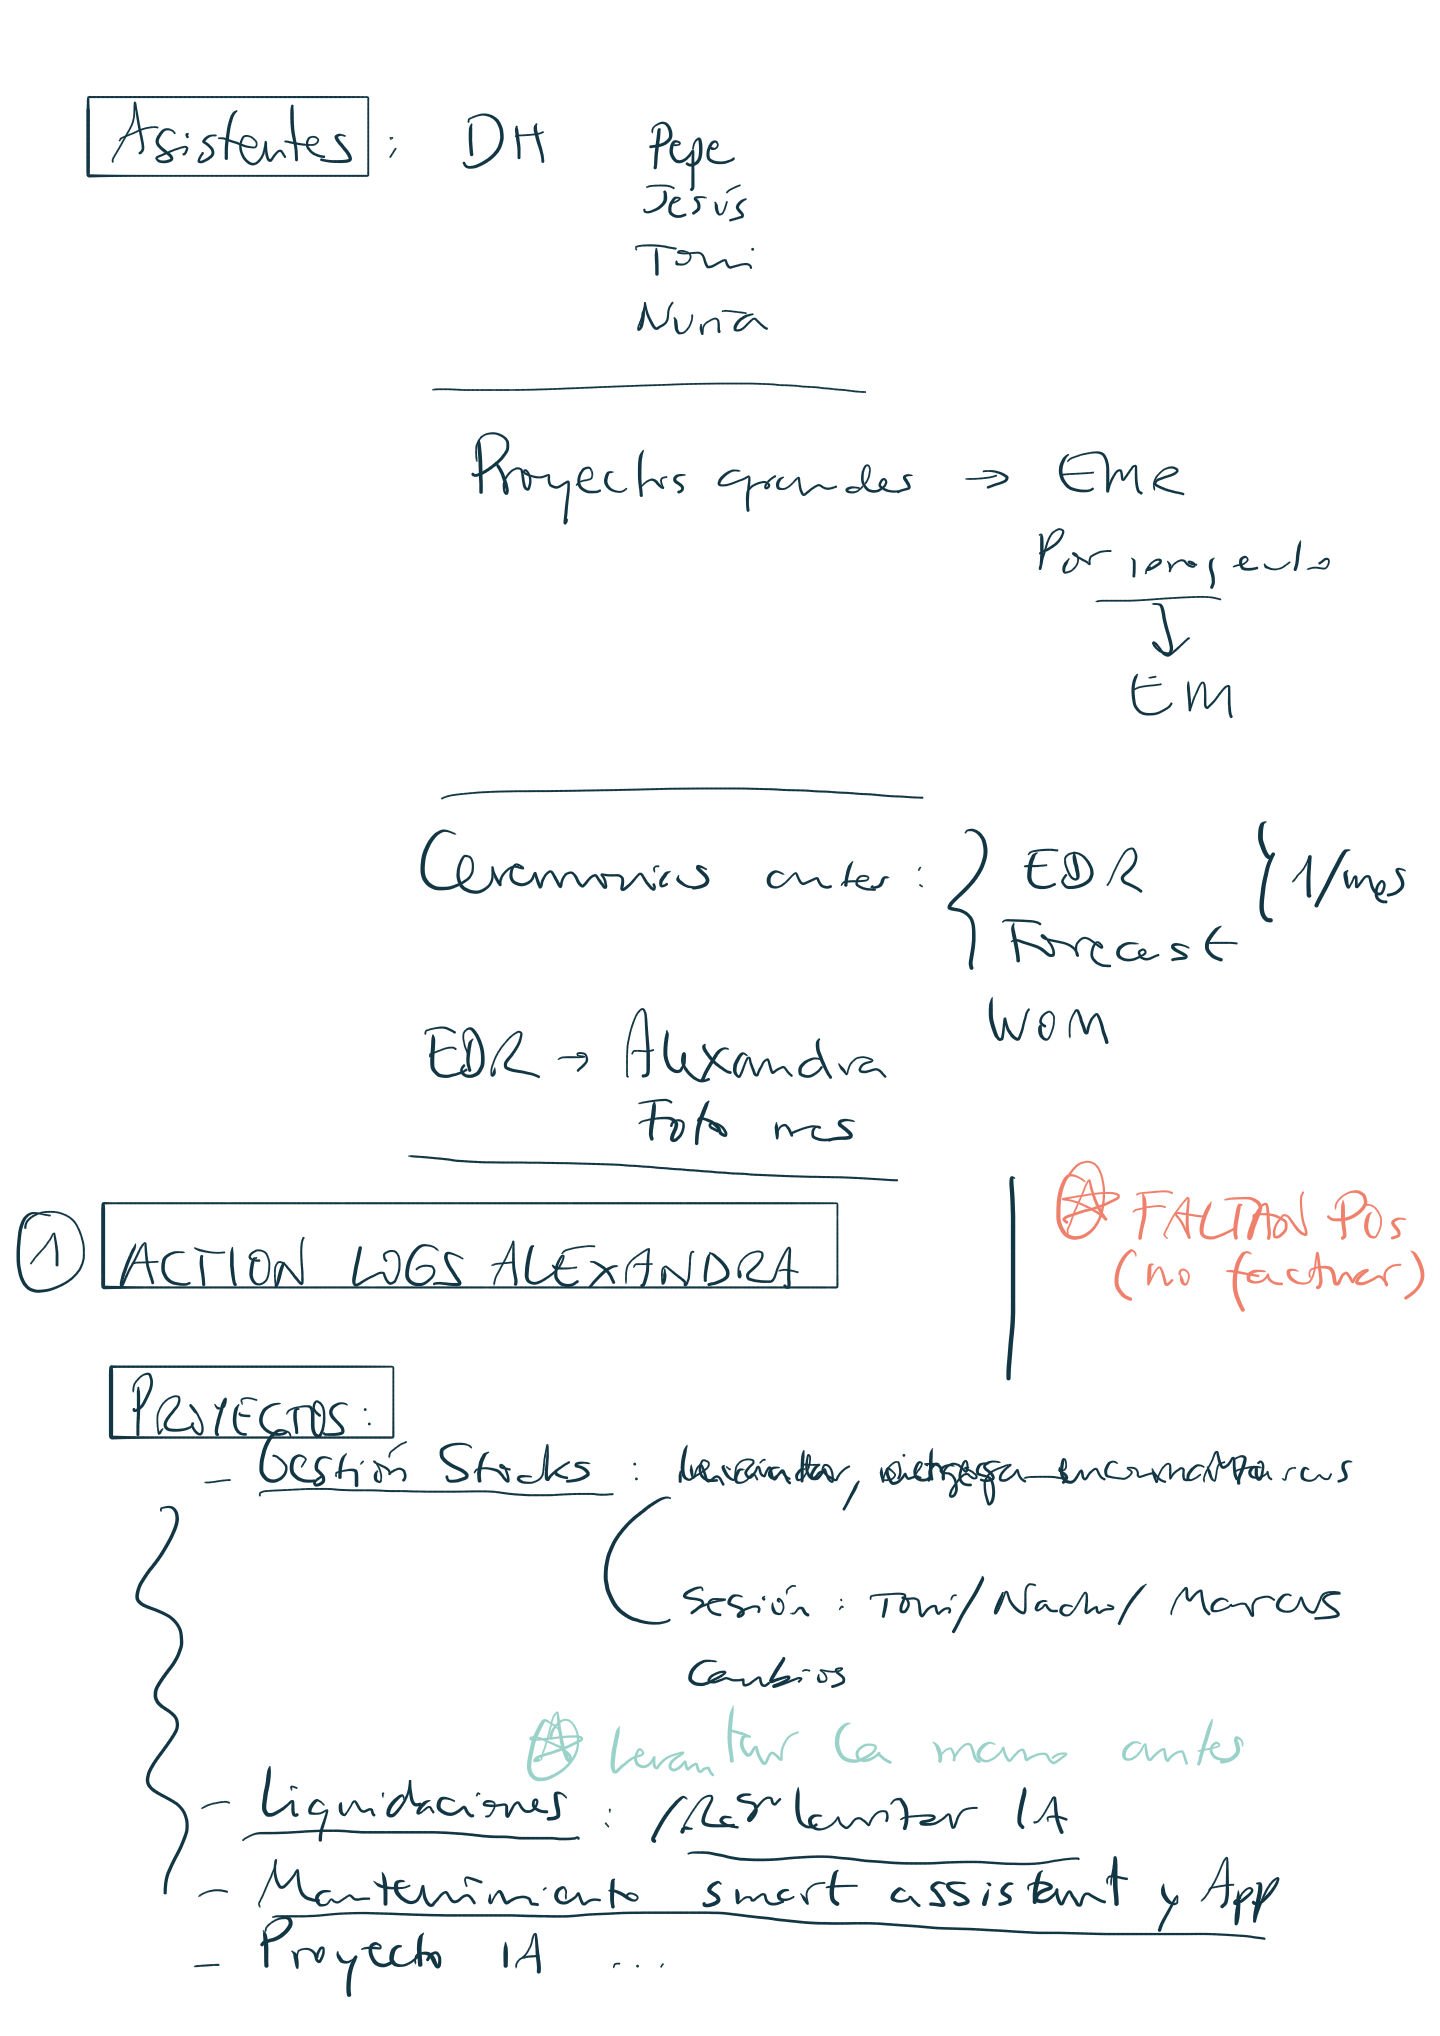 Asistentes: DH Pepe
Jesús
Toni
Nuria
Proyectos grandes → EMR
Por proyecto
↓
EM
Ceremonias antes: { EDR } 1/mes
Forecast
WOM
EDR → Alexandra
Foto mes
① ACTION LOGS ALEXANDRA
FALTAN POs
(no facturar)
PROYECTOS:
- Gestión Stocks :
Sesión : Toni/Nacho/Marcus
Cambios
Levantar la mano antes
- Liquidaciones : IA
- Mantenimiento smart assistant y App
- Proyecto IA ...